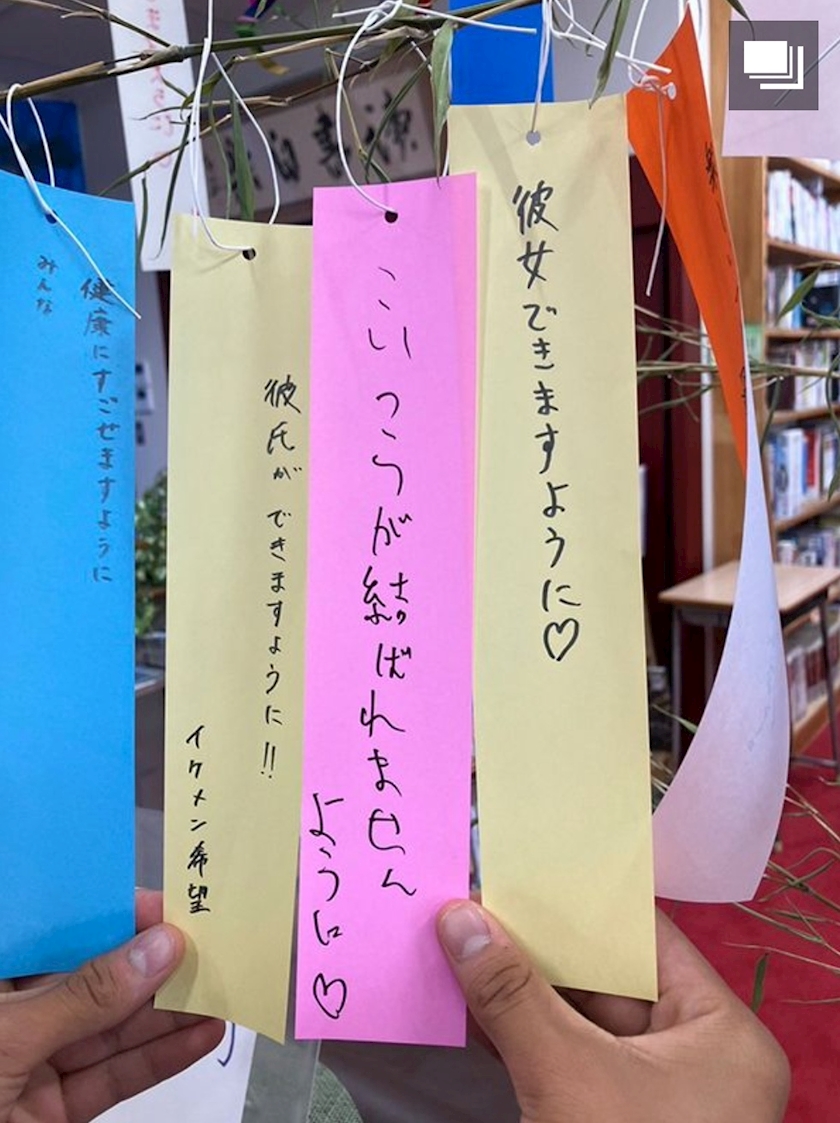 彼女できますように♡
こいつらが結ばれません
ように♡
彼氏ができますように!!
イケメン希望
健康にすごせますように
みんな